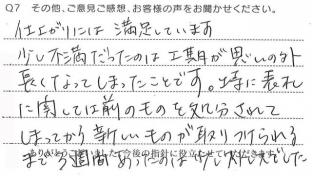 Q7 その他、ご意見ご感想、お客様の声をお聞かせください。
仕上がりには満足しています
少し不満だったのは工期が思いの外
長くなってしまったことです。特に表札
に関しては前のものを処分されて
しまってから新しいものが取りつけられる
まで3週間あったのは少し大変でした